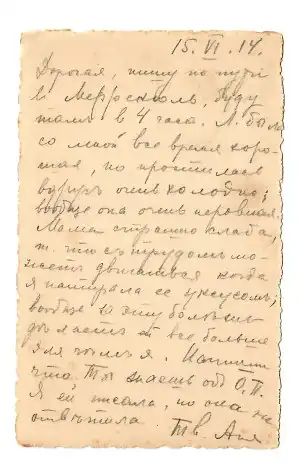 15. VI. 14.
Дорогая, пишу по пути
в Меррекюль, буду
тамъ в 4 часа. М. была
со мной все время хоро-
шая, но простилась
очень холодно;
вообще она очень нервная.
Мама страшно слаба,
т. что съ трудомъ мо-
жетъ двигаться когда
я натирала ее уксусомъ;
вообще за эту болезнь
делаетъ ей все больше
для чемъ я. Напиши
что Ты знаешь объ О.П.
Я ей писала, но она не
ответила Тв. Аня